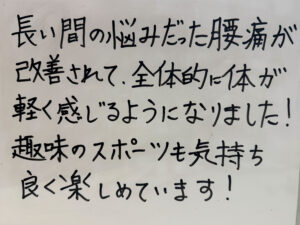 長い間の悩みだった腰痛が
改善されて、全体的に体が
軽く感じるようになりました！
趣味のスポーツも気持ち
良く楽しめています！